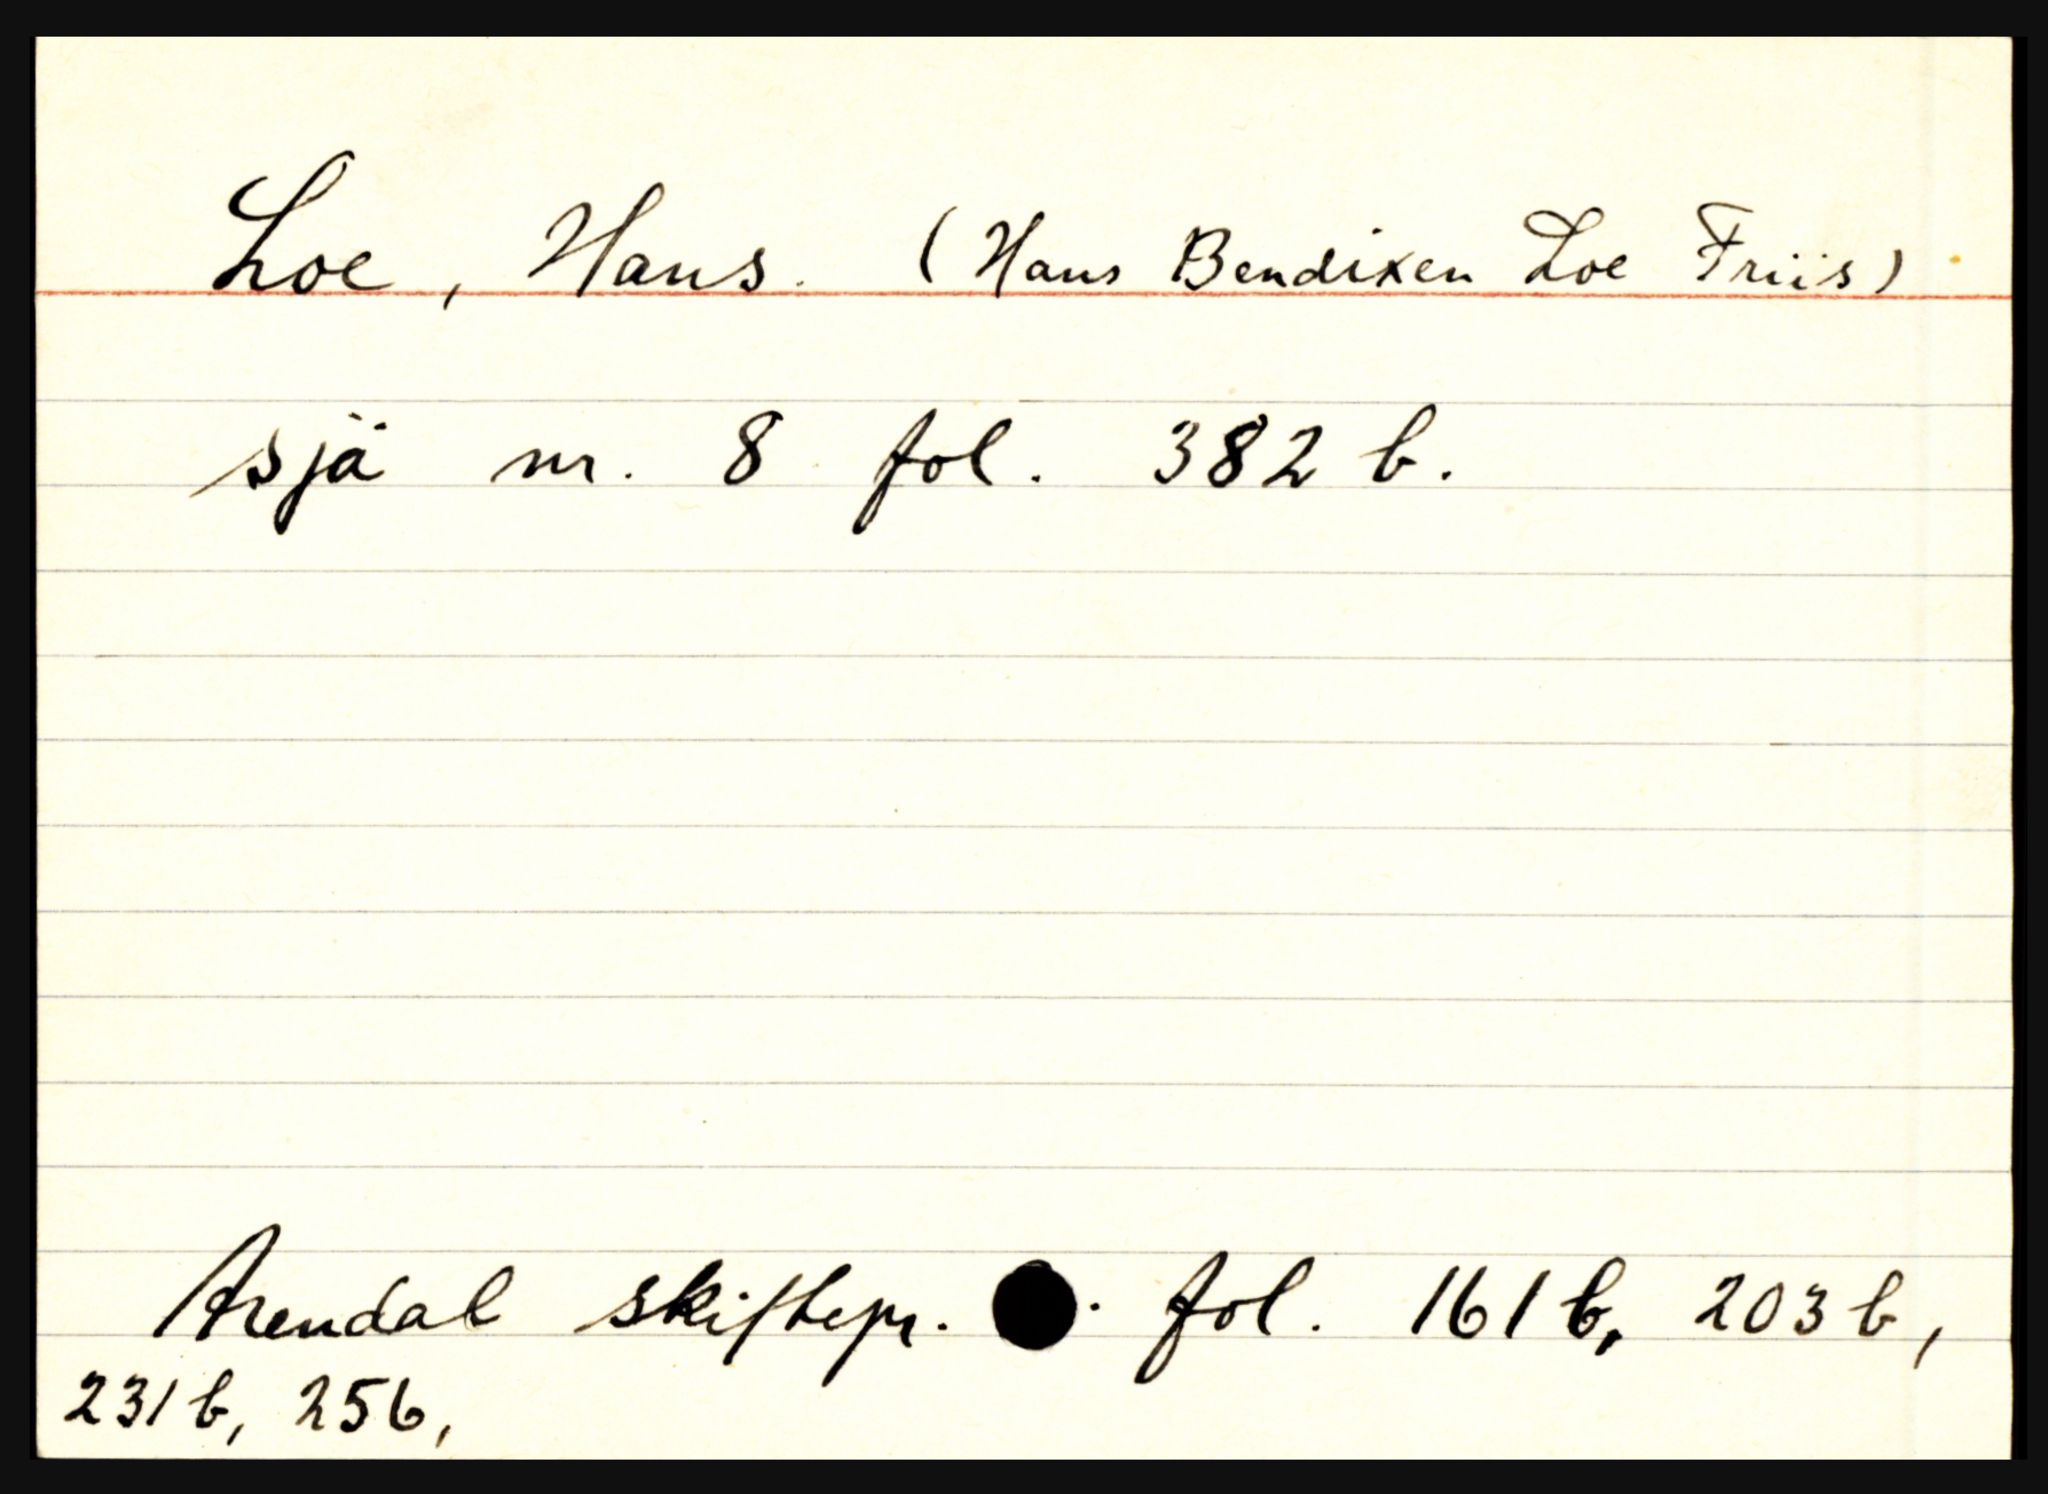 Loe, Hans. (Hans Bendixen Loe Friis)
sjå nr. 8 fol. 382 b.
Arendal skiftepr. . fol. 161 b, 203 b,
231 b, 256,